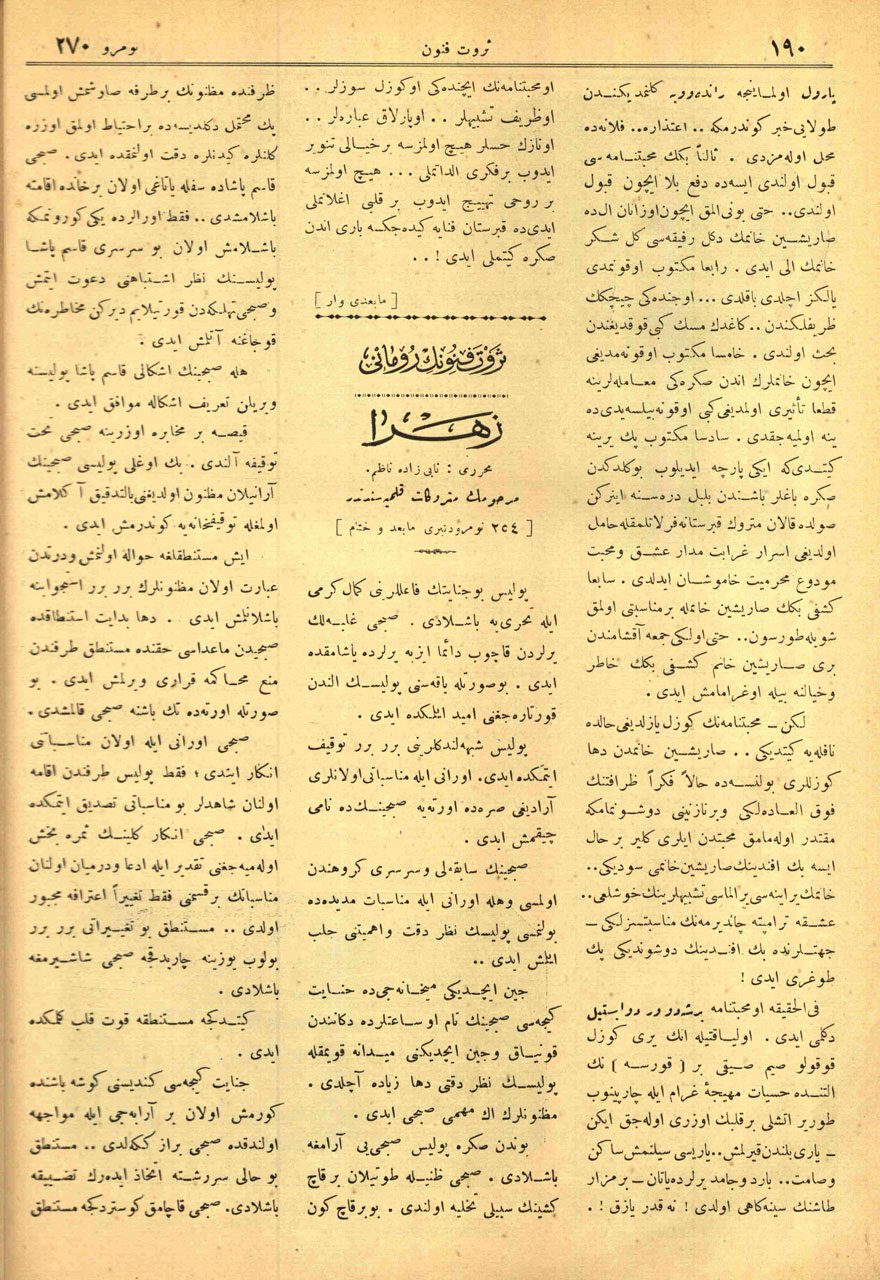 ١٩٠
ثروت فنون
نومرو ٢٧٠
يارول اولمايینجه راندەوويه كلمديكندن
طولايی خبر كوندرمكه .. اعتذاره.. فلانه ده
محل اوله مزدی . ثالثاً بكك محبتنامه سی
قبول اولندی ايسه ده دفع بلا ايچون قبول
اولندی.. حتی بونی المق ايچون اوزانان ال ده
صاريشين خانمك دكل رفيقه سی كل شكر
خانمك الی ايدی . رابعا مكتوب اوقونمدی
يالكز اچلدی باقلدی ... اوجنده كی چيچكك
ظريفلكندن.. كاغدك مسك كبی قوقديغندن
بحث اولندی . خامسا مكتوب اوقونه مديغی
ايچون خانملرك اندن صكره كی معامله لرينه
قطعا تأثيری اولمديغی كبی اوقونه بيلسه يدی ده
ينه اولميه جقدی . سادسا مكتوب پك يرينه
كيتدی كه ايكی پارچه ايديلوب بوكلدكدن
صكره باغلر باشندن بلبل دره سنه اينركن
صولده قالان متروك قبرستانه فرلاتلمقله حامل
اولديغی اسرار غرابت مدار عشق و محبت
مودوع محرميت خاموشان ايدلدی . سابعا
كشفی بكك صاريشين خانمله بر مناسبتی اولمق
شويله طورسون.. حتی اولكی جمعه آقشامندن
بری صاريشين خانم كشفی بكك خاطر
وخيالنه بيله اوغرامامش ايدی .
لكن ـ محبتنامه نك كوزل يازلديغی حالده
نافله يه كيتديكی .. صاريشين خانمدن دها
كوزللری بولنسه ده حالاً فكراً ظرافتنك
فوق العاده لكی وبرنازنينی دوشونمامكه
مقتدر اوله مامق محبتدن ايلری كلير بر حال
ايسه بك افندينك صاريشين خانمی سوديكی..
خانمك براينه سی بر الماسی تشبيهلرينك خوشلغی..
عشقه ترامپته چالديرمه نك مناسبتسزلكی ـ
جهتلرنده بك افندينك دوشونديكی پك
طوغری ايدی !
فی الحقيقه او محبتنامه برشه دوور دو استيل
دكلمی ايدی . اولياقتيله انك يری كوزل
قوقولو صيم صيقی بر ( قورسه ) نك
التنده حسيات مهيجۀ غرام ايله چارپينوب
طورير اتشلی بر قلبك اوزری اوله جق ايكن
ـ ياری بلندن قيرلمش.. ياريسی سيلنمش ساكن
وصامت.. بارد وجامد يرلرده ياتان ـ بر مزار
طاشنك سينه كاهی اولدی ! نه قدر يازق ! .
او محبتنامه نك ايچنده كی او كوزل سوزلر ..
او ظريف تشبيهلر .. او پارلاق عباره لر ..
او نازك حسلر هيچ اولمزسه بر خيالی تنوير
ايدوب بر فكری الداتملی ... هيچ اولمزسه
بر روحی تهييج ايدوب بر قلبی اغلاتملی
ايدی ده قبرستان فنايه كيده جكسه باری اندن
صكره كيتملی ايدی ! ..
[ مابعدی وار ]
ثروت فنونك رومانی
زهرا
محرری : نابی زاده ناظم .
مرحومك متروكات قلميه سندندر
[ ٢٥٤ نومرودنبری مابعد و ختام ]
پوليس بو جنايتك فاعللرينی كمال كرمی
ايله تحری يه باشلادی . صبحی غلبه لك
يرلردن قاچوب دائما ايزبه يرلرده ياشامقده
ايدی . بو صورتله ياقه سنی پوليسك الندن
قورتاره جغنی اميد ايلكده ايدی .
پوليس شبهه لندكلرينی برر برر توقيف
ايتمكده ايدی. اورانی ايله مناسباتی اولانلری
آراديغی صره ده اورته يه صبحينك ده نامی
چيقمش ايدی .
صبحينك سابقه لی و سرسری كروهندن
اولمسی وهله اورانی ايله مناسبات مديده ده
بولنمسی پوليسك نظر دقت واهميتنی جلب
ايتمش ايدی ..
جين ايچديكی ميخانه جی ده جنايت
كيجه سی صبحينك تام او ساعتلرده دكانندن
قونياق وجين ايچديكنی ميدانه قويمقله
پوليسك نظر دقتی دها زياده آچلدی .
مظنونلرك اك مهمی صبحی ايدی .
بوندن صكره پوليس صبحی يی آرامغه
باشلادی . صبحی ظنيله طوتيلان برقاچ
كشينك سبيلی تخليه اولندی . بو برقاچ كون
ظرفنده مظنونك بر طرفه صاوشمش اولمسی
پك محتمل دكلديسه ده بر احتياط اولمق اوزره
كلنلره كيدنلره دقت اولنمقده ايدی . صبحی
قاسم پاشاده سفله ياتاغی اولان بر خانده اقامته
باشلامشدی .. فقط اورالرده يكی كورونمكه
باشلامش اولان بو سرسری قاسم پاشا
پوليسنك نظر اشتباهنی دعوت ايتمش
وصبحی تهلكه دن قورتيلايم ديركن مخاطره نك
قوجاغنه آتلمش ايدی .
هله صبحينك اشكالی قاسم پاشا پوليسنه
ويريلن تعريف اشكاله موافق ايدی .
قيصه بر مخابره اوزرينه صبحی تحت
توقيفه آلندی . بك اوغلی پوليسی صبحينك
آرانيلان مظنون اولديغنی بالتدقيق آكلامش
اولمغله توقيفخانه يه كوندرمش ايدی .
ايش مستنطقلغه حواله اولنمش ودرتدن
عبارت اولان مظنونلرك برر برر استجوابنه
باشلانلمش ايدی . . دها بدايت استنطاقده
صبحيدن ماعداسی حقنده مستنطق طرفندن
منع محاكمه قراری ويرلمش ايدی . بو
صورتله اورته ده تك باشنه صبحی قالمشدی .
صبحی اورانی ايله اولان مناسباتی
انكار ايتدی ؛ فقط پوليس طرفندن اقامه
اولنان شاهدلر بو مناسباتی تصديق ايتمكده
ايدی . صبحی انكار كلينك ثمره بخش
اوله ميه جغنی تقدير ايله ادعا ودرميان اولنان
مناسباتك بر قسمنی فقط تغييراً اعترافه مجبور
اولدی .. مستنطق بو تغييراتی برر برر
بولوب يوزينه چارپدقجه صبحی شاشيرمغه
باشلادی .
كيتدكجه مستنطقه قوت قلب كلمكده
ايدی .
جنايت كيجه سی كنديسنی كوشه باشنده
كورمش اولان بر آرابه جی ايله مواجهه
اولندقده صبحی براز ككه لدی .. مستنطق
بو حالی سررشته اتخاذ ايده رك تضييقه
باشلادی. صبحی قاچامق كوستردكجه مستنطق